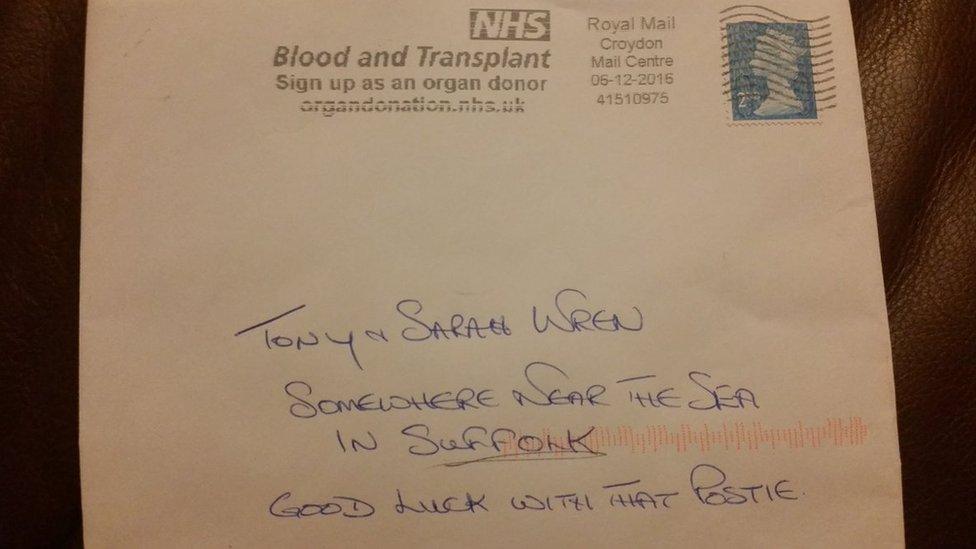 NHS
Blood and Transplant
Sign up as an organ donor
organdonation.nhs.uk
Royal Mail
Croydon
Mail Centre
06-12-2016
41510975
2nd
TONY & SARAH WREN
SOMEWHERE NEAR THE SEA
IN SUFFOLK
GOOD LUCK WITH THAT POSTIE.